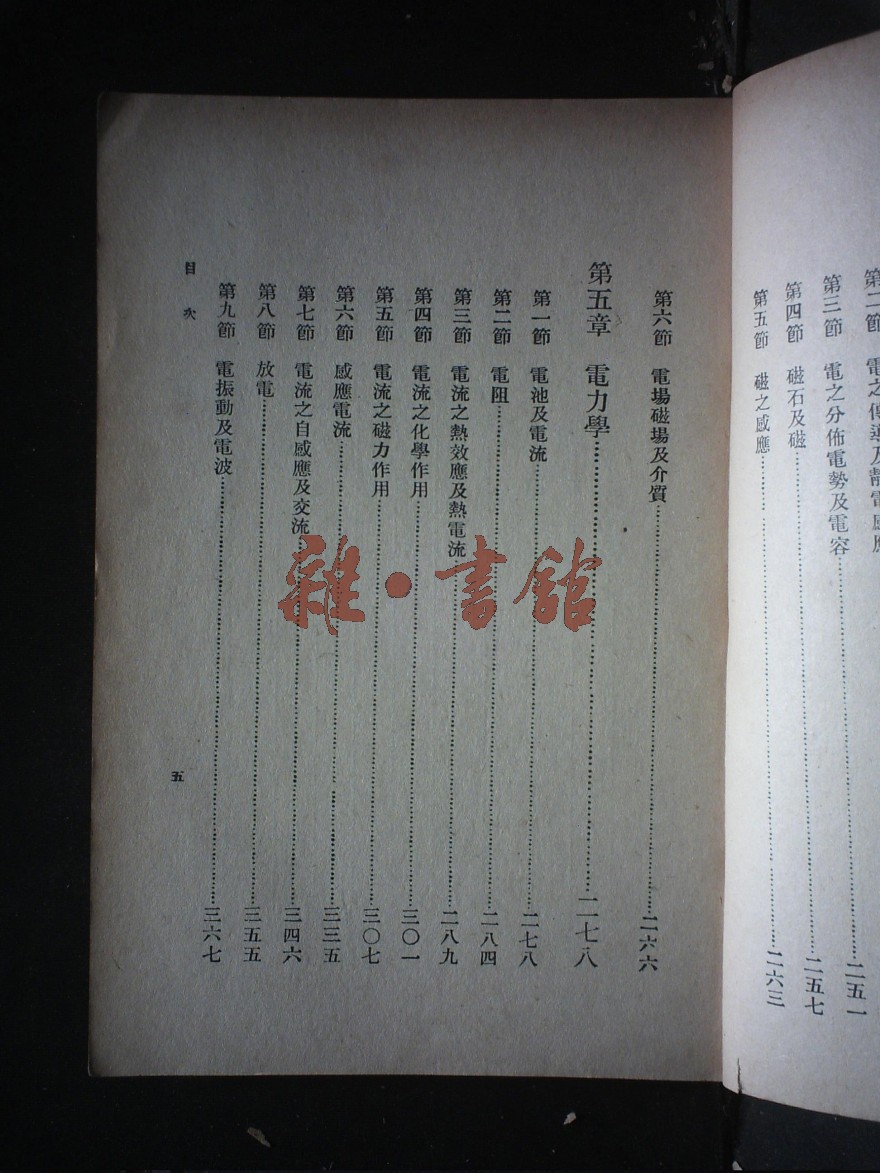 第三節　電之分佈電勢及電容……二五一
第四節　磁石及磁……二五七
第五節　磁之感應……二六三
第六節　電場磁場及介質……二六六
第五章　電力學……二七八
第一節　電池及電流……二七八
第二節　電阻……二八四
第三節　電流之熱效應及熱電流……二八九
第四節　電流之化學作用……三〇一
第五節　電流之磁力作用……三〇七
第六節　感應電流……三三五
第七節　電流之自感應及交流……三四六
第八節　放電……三五五
第九節　電振動及電波……三六七
目次
五
雜·書館